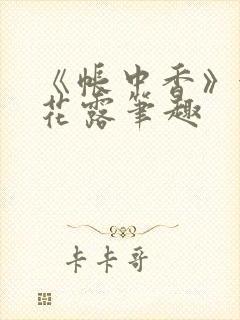 《帐中香》
花露笔趣
卡卡哥